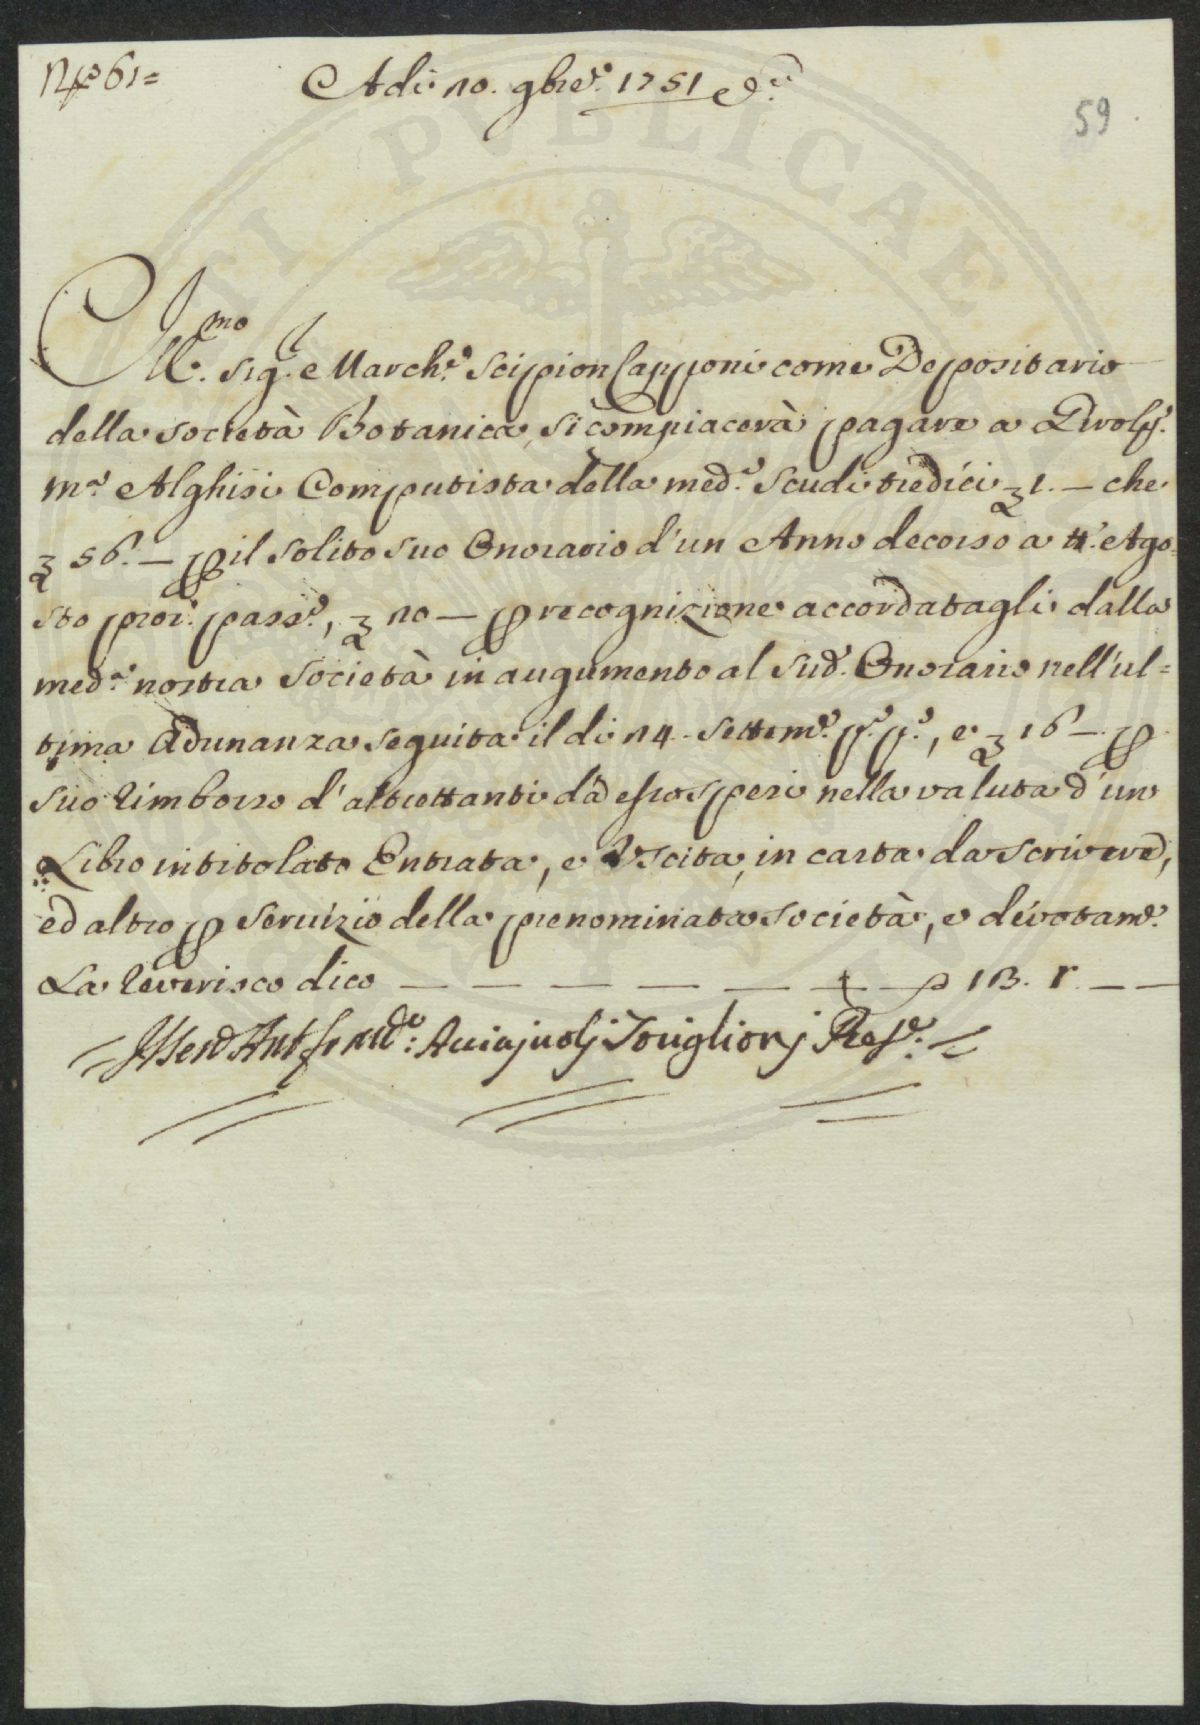 N.º 61=
Adi 10. 9bre. 1751
59
Ill.mo Sig.e March.e Scipion Capponi come Depositario
della Società Botanica, si compiacerà pagare a
M.a Alghisi Computista della med.a Scudi tredici 1.— che
56.— p il solito suo Onorario d'un Anno decorso a Ago-
sto pros. pass.o, 10— p recognizione accordatagli dalla
med.a nostra Società in augumento al sud. Onorario nell'ul=
tima Adunanza seguita il di 14. Settem.e p.o p.o, e 16— p
suo rimborso d'altrettanti da esso spesi nella valuta d'un
Libro intitolato Entrata, e Uscita, in carta da scrivere,
ed altro p servizio della prenominata Società, e devotam.e
La reverisco dico — — — — — — 13. 1 — —
Ant. Fran. Acciajuolj Toriglionj
PUBLICAE